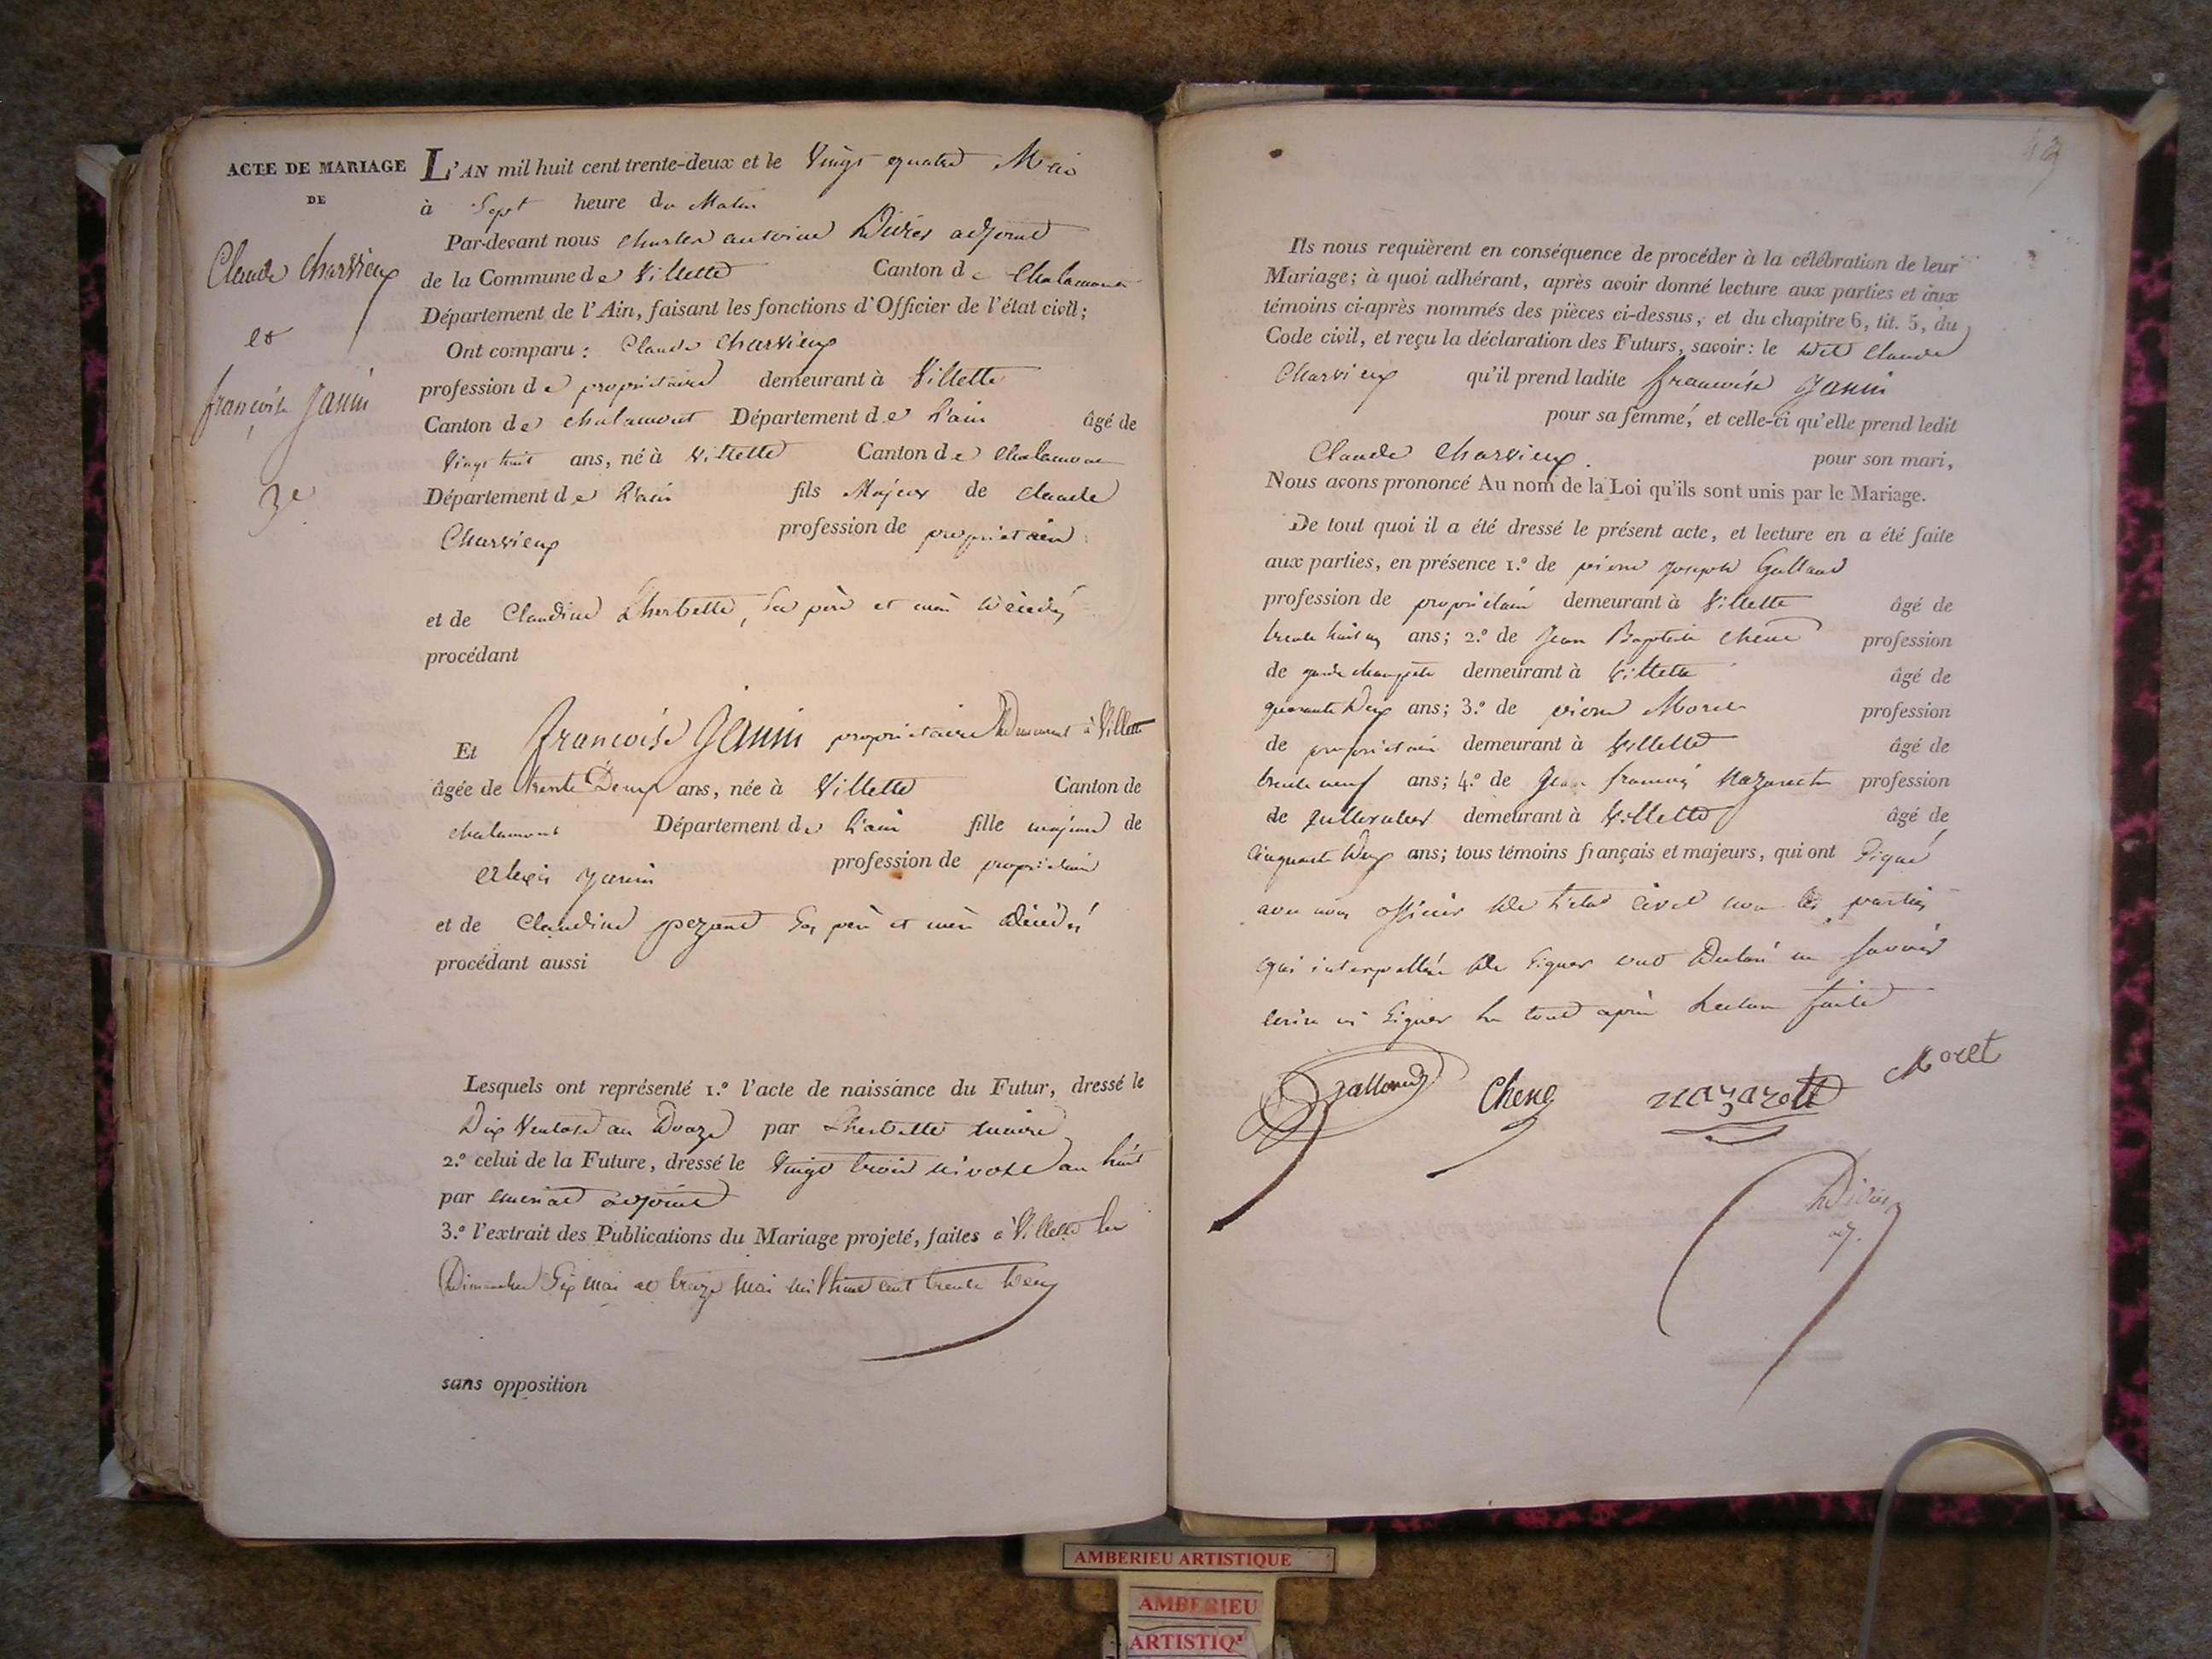 ACTE DE MARIAGE
DE
Claude Charvieux
et
françoise Janin
3e
L'AN mil huit cent trente-deux et le Vingt quatre Mai
à Sept heure du Matin
Par-devant nous Charles antoine adjoint
de la Commune de Villette Canton de Chalamont
Département de l'Ain, faisant les fonctions d'Officier de l'état civil;
Ont comparu: Claude Charvieux
profession de propriétaire demeurant à Villette
Canton de chalamont Département de L'ain âgé de
Vingt huit ans, né à Villette Canton de Chalamont
Département de L'ain fils Majeur de claude
Charvieux profession de propriétaire
et de Claudine Lherbette, Ses père et mère décédés
procédant
Et françoise Janin propriétaire Demeurant à Villette
âgée de trente Deux ans, née à Villette Canton de
chalamont Département de L'ain fille majeure de
alexis Janin profession de propriétaire
et de Claudine pezant Ses père et mère décédés
procédant aussi
Lesquels ont représenté 1.º l'acte de naissance du Futur, dressé le
Dix Ventose an Douze par Lherbette maire
2.º celui de la Future, dressé le Vingt trois nivose an huit
par adjoint
3.º l'extrait des Publications du Mariage projeté, faites à Villette les
Dimanches Six mai et treize mai mil huit cent trente Deux
sans opposition
49
Ils nous requièrent en conséquence de procéder à la célébration de leur
Mariage; à quoi adhérant, après avoir donné lecture aux parties et aux
témoins ci-après nommés des pièces ci-dessus, et du chapitre 6, tit. 5, du
Code civil, et reçu la déclaration des Futurs, savoir: le dit Claude
Charvieux qu'il prend ladite françoise Janin
pour sa femme, et celle-ci qu'elle prend ledit
Claude Charvieux pour son mari,
Nous avons prononcé Au nom de la Loi qu'ils sont unis par le Mariage.
De tout quoi il a été dressé le présent acte, et lecture en a été faite
aux parties, en présence 1.º de pierre Joseph Galland
profession de propriétaire demeurant à Villette âgé de
trente huit ans; 2.º de Jean Baptiste Chene profession
de garde champetre demeurant à Villette âgé de
quarante Deux ans; 3.º de pierre Morel profession
de propriétaire demeurant à Villette âgé de
trente neuf ans; 4.º de Jean françois Nazareth profession
de demeurant à Villette âgé de
Cinquante Deux ans; tous témoins français et majeurs, qui ont Signé
avec nous officier De L'etat Civil non les parties
qui interpellés De Signer ont Déclaré ne Savoir
écrire ni Signer Le tout après Lecture faite
Galland Chene nazareth Morel
adj.
AMBERIEU ARTISTIQUE
AMBERIEU
ARTISTIQ